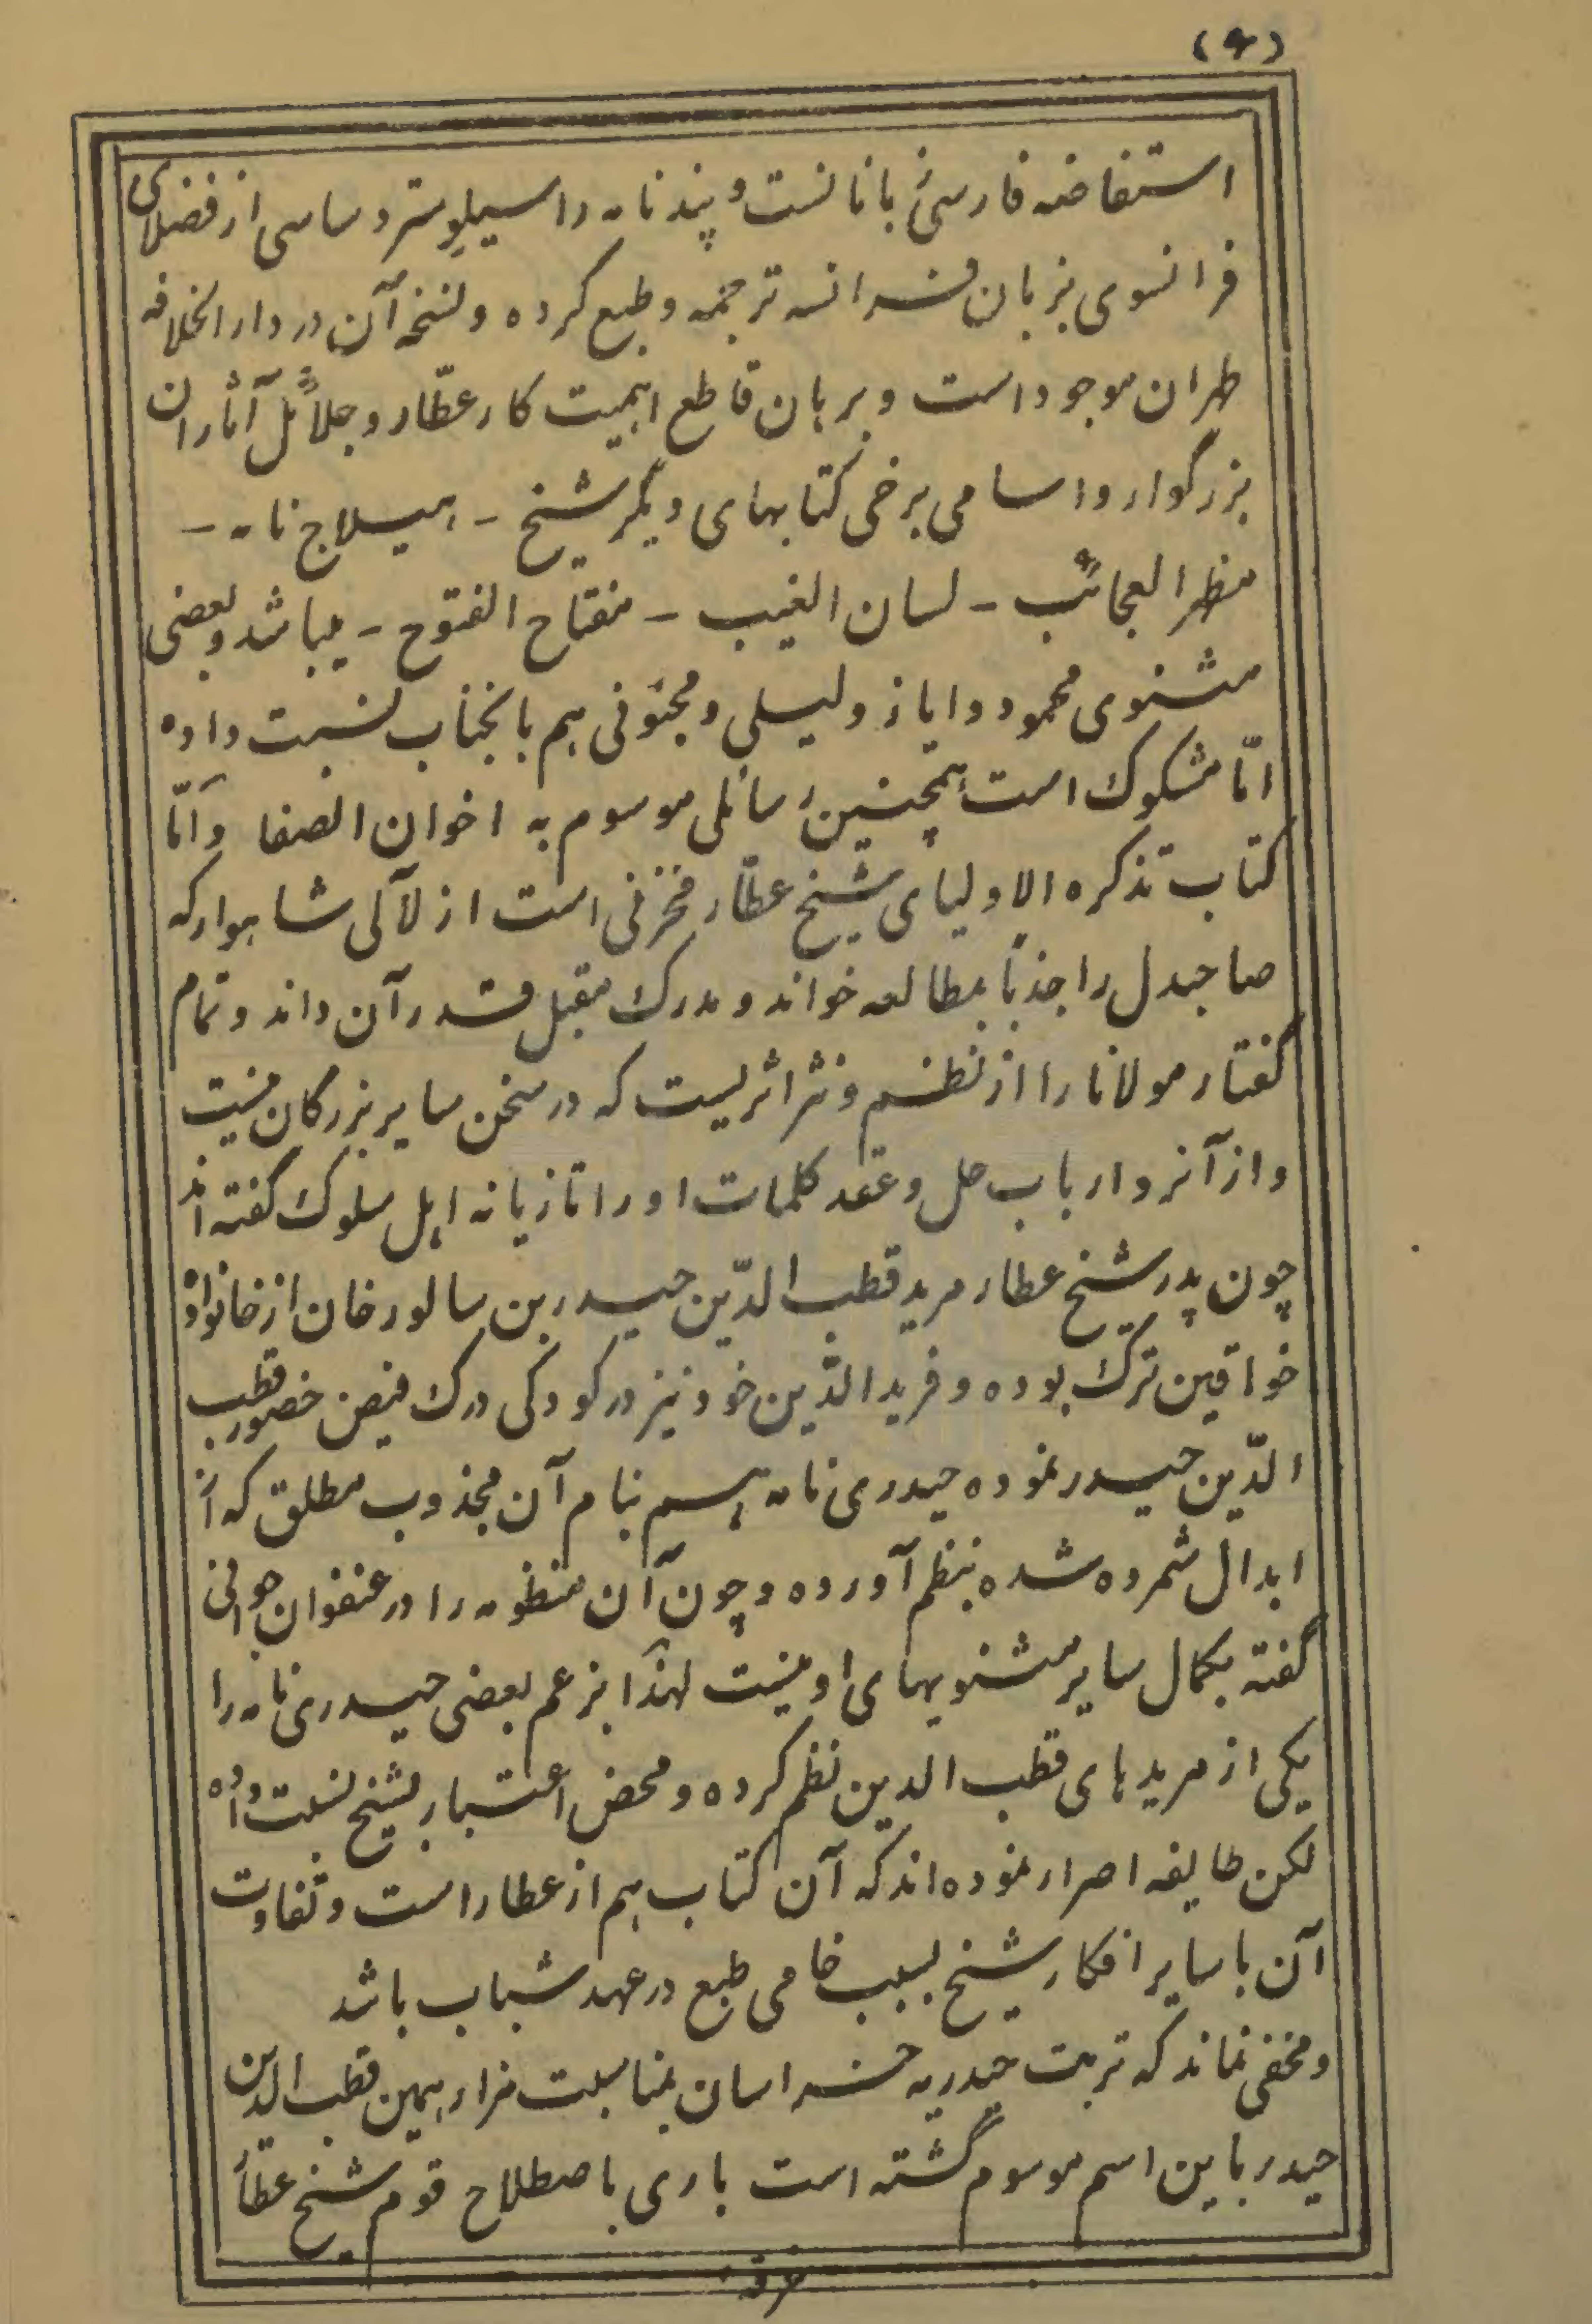 (۶)
استفاضه فارسی بانانست و پندنامه را سیلوستر دساسی از فضلای
فرانسوی بزبان فرانسه ترجمه و طبع کرده و نسخه آن در دار الخلافه
طهران موجود است و برهان قاطع اهمیت کار عطّار و جلائل آثار ان
بزرگوار و اسامی برخی کتابهای دیگر شیخ – هیلاج نامه –
مظهر العجائب – لسان الغیب – مفتاح الفتوح – میباشد و بعضی
مثنوی محمود و ایاز و لیلی و مجنونی هم بانجناب نسبت داده
امّا مشکوک است همچنین رسائلی موسوم به اخوان الصفا و امّا
کتاب تذکره الاولیای شیخ عطّار مخزنی است از لآلی شاهوار که
صاحبدل را جذباً بمطالعه خواند و مدرک مقبل قدر آن داند و تمام
گفتار مولانا را از نظم و نثر اثریست که در سخن سایر بزرگان نیست
و از آنرو ارباب حل و عقد کلمات او را تازیانه اهل سلوک گفته اند
چون پدر شیخ عطار مرید قطب الدّین حیدر بن سالور خان از خانواده
خواقین ترک بوده و فرید الدّین خود نیز در کودکی درک فیض حضور قطب
الدّین حیدر نموده حیدری نامه هم بنام آن مجذوب مطلق که از
ابدال شمرده شده بنظم آورده و چون آن منظومه را در عنفوان جوانی
گفته بکمال سایر مثنویهای او نیست لهذا بزعم بعضی حیدری نامه را
یکی از مریدهای قطب الدین نظم کرده و محض اعتبار بشیخ نسبت داده
لکن طایفه اصرار نموده اند که آن کتاب هم از عطار است و تفاوت
آن با سایر افکار شیخ بسبب خامی طبع در عهد شباب باشد
و مخفی نماند که تربت حیدریه خراسان بمناسبت مزار همین قطب الدین
حیدر باین اسم موسوم گشته است باری باصطلاح قوم شیخ عطّار
خرقه